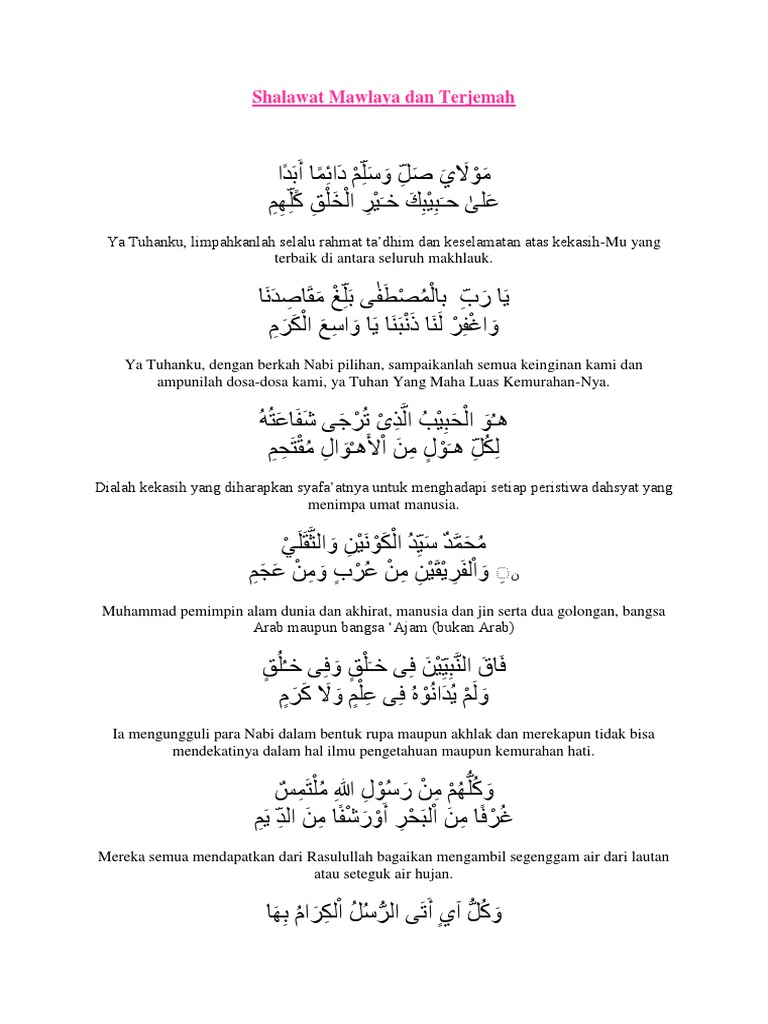 Shalawat Mawlaya dan Terjemah
مَوْلَايَ صَـلِّ وَسَلِّمْ دَائِمًا أَبَدًا
عَلىٰ حـَبِيْبِكَ خـَيْرِ الْخَلْقِ كُلِّهِمِ
Ya Tuhanku, limpahkanlah selalu rahmat ta’dhim dan keselamatan atas kekasih-Mu yang
terbaik di antara seluruh makhlauk.
يَا رَبِّ بِالْمُصْطَفٰى بَلِّغْ مَقَاصِدَنَا
وَاغْفِرْ لَنَا ذَنْبَنَا يَا وَاسِعَ الْكَرَمِ
Ya Tuhanku, dengan berkah Nabi pilihan, sampaikanlah semua keinginan kami dan
ampunilah dosa-dosa kami, ya Tuhan Yang Maha Luas Kemurahan-Nya.
هـُوَ الْحَبِيْبُ الَّذِىْ تُرْجَى شَفَاعَتُهُ
لِكُلِّ هـَوْلٍ مِنَ اْلأَهـْوَالِ مُقْتَحِمِ
Dialah kekasih yang diharapkan syafa’atnya untuk menghadapi setiap peristiwa dahsyat yang
menimpa umat manusia.
مُحَمَّدٌ سَيِّدُ الْكَوْنَيْنِ وَالثَّقَلَيْ
ن ِ وَاْلفَرِيْقَيْنِ مِنْ عُرْبٍ وَمِنْ عَجَمِ
Muhammad pemimpin alam dunia dan akhirat, manusia dan jin serta dua golongan, bangsa
Arab maupun bangsa ‘Ajam (bukan Arab)
فَاقَ النَّبِيِّيْنَ فِى خـَلْقٍ وَفِى خـُلُقٍ
وَلَمْ يُدَانُوْهُ فِى عِلْمٍ وَلَا كَرَمِ
Ia mengungguli para Nabi dalam bentuk rupa maupun akhlak dan merekapun tidak bisa
mendekatinya dalam hal ilmu pengetahuan maupun kemurahan hati.
وَكُلُّهُمْ مِنْ رَسُوْلِ اللهِ مُلْتَمِسٌ
غُرْفًا مِنَ اْلبَحْرِ أَوْرَشْفًا مِنَ الدِّ يَمِ
Mereka semua mendapatkan dari Rasulullah bagaikan mengambil segenggam air dari lautan
atau seteguk air hujan.
وَكُلُّ آيٍ أَتَى الرُّسُلُ اْلكِرَامُ بِهَا